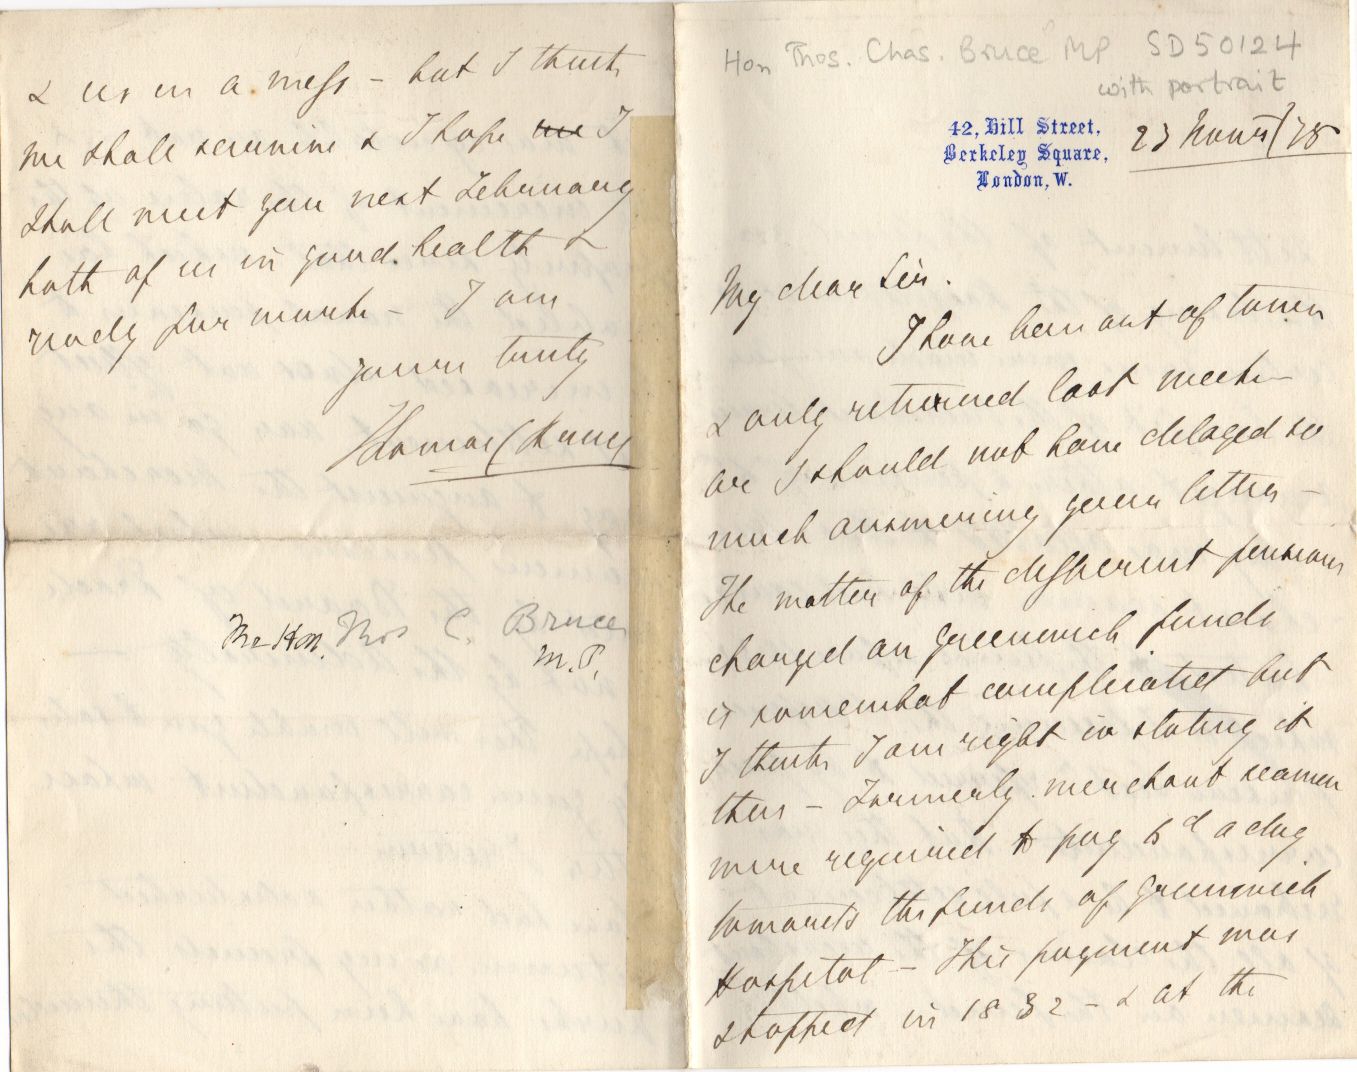 Hon Thos. Chas. Bruce MP SD50124
with portrait
42, Hill Street,
Berkeley Square,
London, W.
23 Nov /78
My dear Sir.
I have been out of town
& only returned last week -
or I should not have delayed so
much answering your letter -
The matter of the different pensions
charged on Greenwich funds
is somewhat complicated but
I think I am right in stating it
thus - Formerly merchant seamen
were required to pay 6d a day
towards the funds of Greenwich
Hospital - This payment was
stopped in 1832 - & at the
& us in a mess - but I think
we shall survive & I hope we I
shall meet you next February
both of us in good health &
ready for work - I am
yours truly
Thomas C Bruce
The Hon. Thos C. Bruce
M.P.